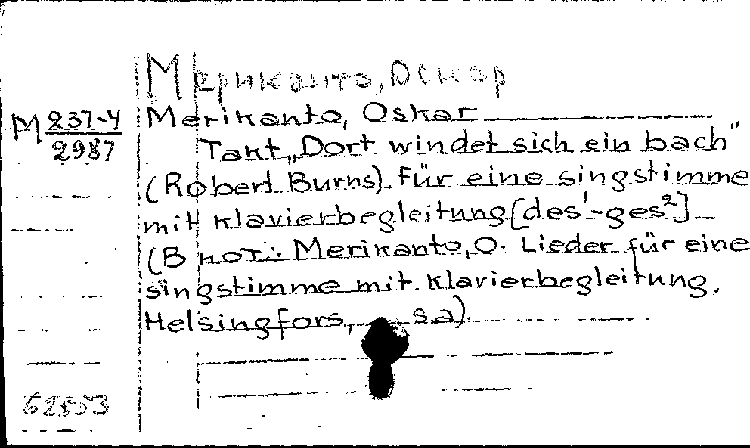 Мериканто, Оскар
M 237-4
2987
Merikanto, Oskar
Takt „Dort windet sich ein bach"
(Robert Burns). Für eine singstimme
mit klavierbegleitung [des¹-ges²]
(В нот.: Merikanto, O. Lieder für eine
singstimme mit klavierbegleitung.
Helsingfors, s.a).
62553